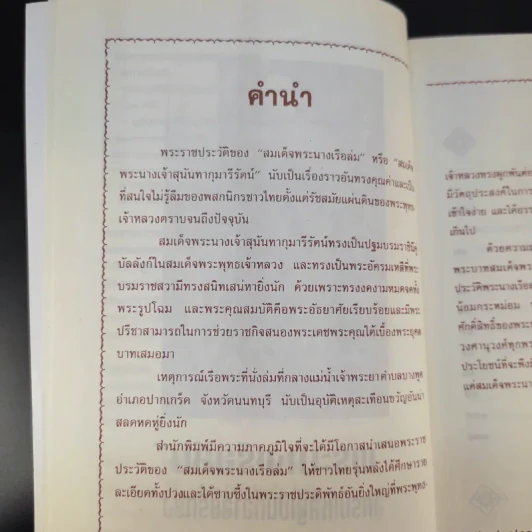 คำนำ
พระราชประวัติของ “สมเด็จพระนางเรือล่ม” หรือ “สมเด็จ
พระนางเจ้าสุนันทากุมารีรัตน์” นับเป็นเรื่องราวอันทรงคุณค่าและเป็น
ที่สนใจไม่รู้ลืมของพสกนิกรชาวไทยตั้งแต่รัชสมัยแผ่นดินของพระพุทธ
เจ้าหลวงตราบจนถึงปัจจุบัน
สมเด็จพระนางเจ้าสุนันทากุมารีรัตน์ทรงเป็นปฐมบรมราชินี
บัลลังก์ในสมเด็จพระพุทธเจ้าหลวง และทรงเป็นพระอัครมเหสีที่พระ
บรมราชสวามีทรงสนิทเสน่หายิ่งนัก ด้วยเพราะทรงงดงามหมดจดทั้ง
พระรูปโฉม และพระคุณสมบัติคือพระอัธยาศัยเรียบร้อยและมีพระ
ปรีชาสามารถในการช่วยราชกิจสนองพระเดชพระคุณใต้เบื้องพระยุคล
บาทเสมอมา
เหตุการณ์เรือพระที่นั่งล่มที่กลางแม่น้ำเจ้าพระยาตำบลบางพูด
อำเภอปากเกร็ด จังหวัดนนทบุรี นับเป็นอุบัติเหตุสะเทือนขวัญอันน่า
สลดหดหู่ยิ่งนัก
สำนักพิมพ์มีความภาคภูมิใจที่จะได้มีโอกาสนำเสนอพระราช
ประวัติของ “สมเด็จพระนางเรือล่ม” ให้ชาวไทยรุ่นหลังได้ศึกษาราย
ละเอียดทั้งปวงและได้ซาบซึ้งในพระราชประดิพัทธ์อันยิ่งใหญ่ที่พระพุทธ-
เจ้าหลวงทรงผูกพันต่อ
มีวัตถุประสงค์ในการ
เข้าใจง่าย และได้อรร
เกินไป
ด้วยความส
พระบาทสมเด็จพระ
ประวัติพระนางเรือล
น้อมกระหม่อม
ศักดิ์สิทธิ์ของพระ
วงศานุวงศ์ทุกพระ
ประโยชน์ที่จะพึงมี
แด่สมเด็จพระนาง